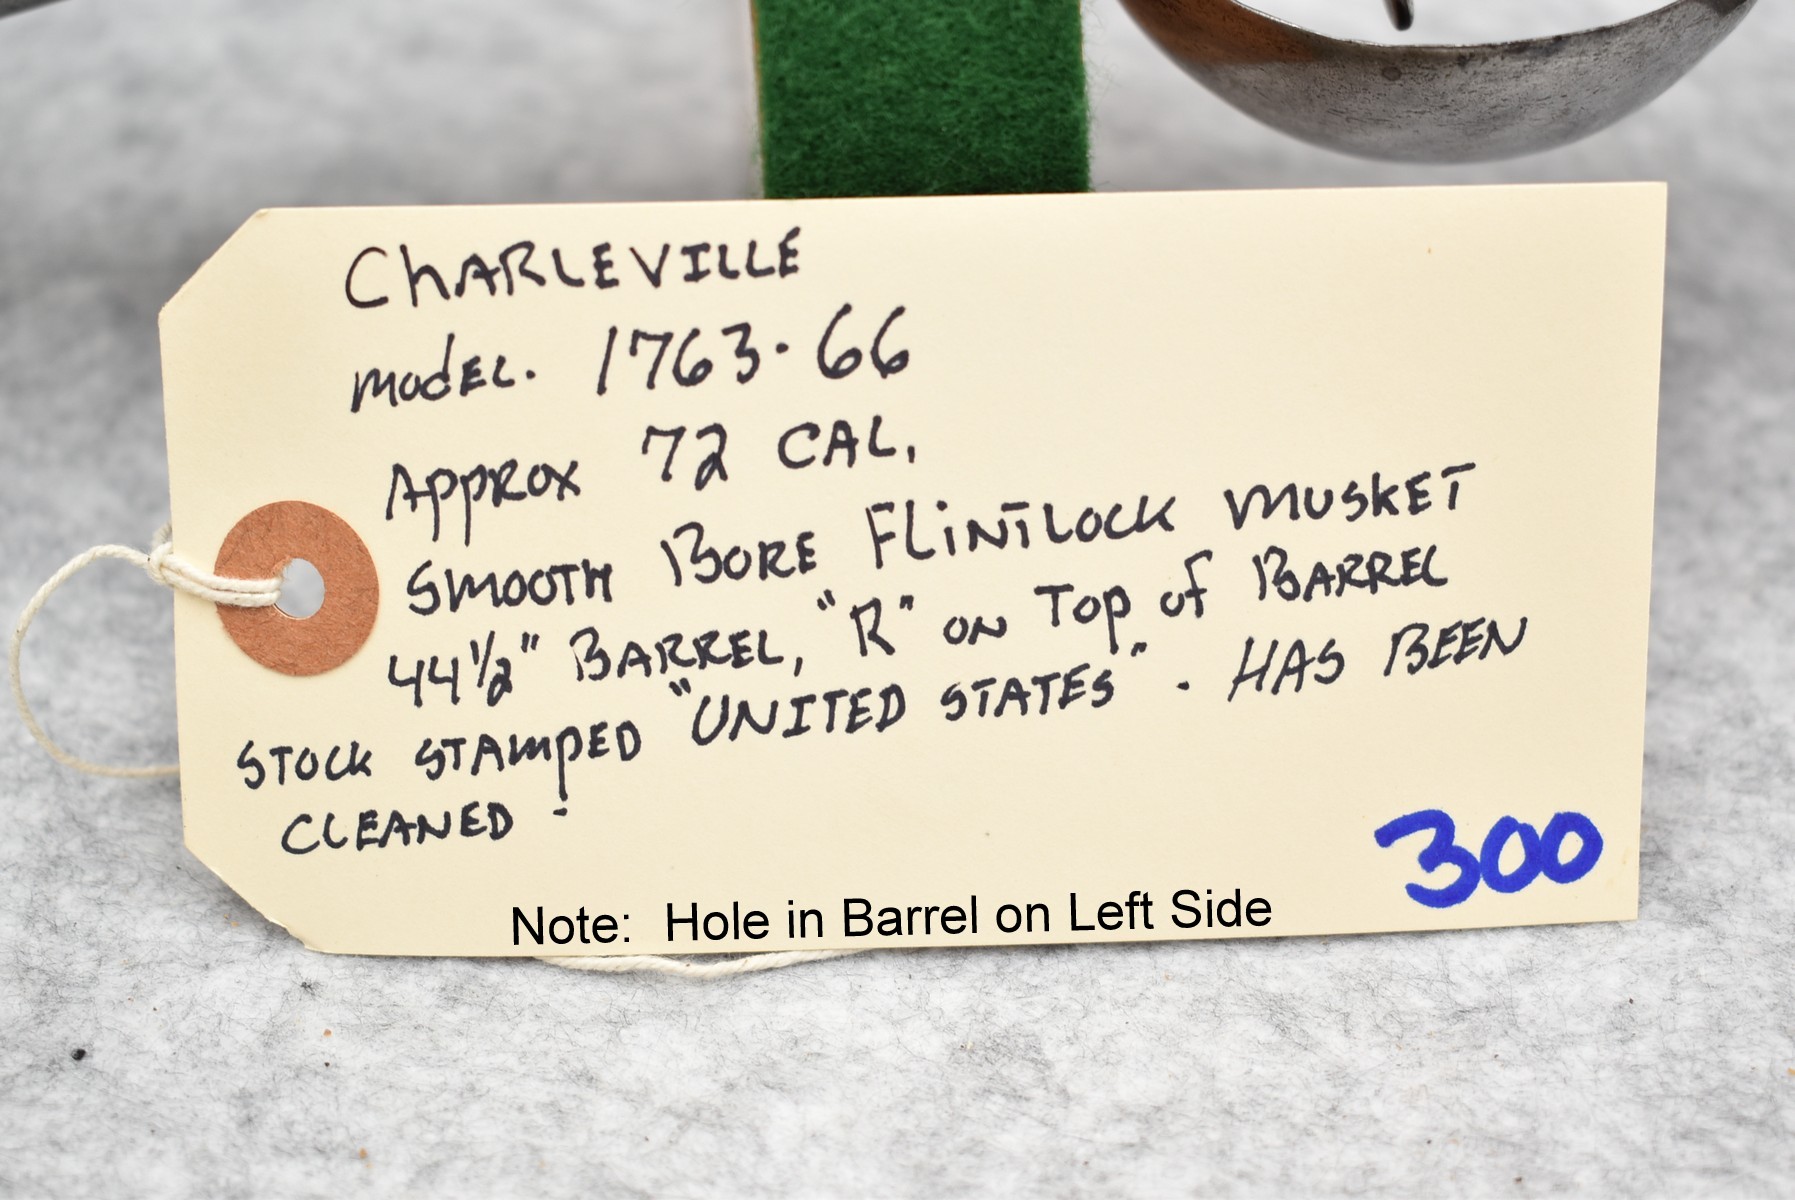 CHARLEVILLE
MODEL. 1763-66
APPROX 72 CAL.
SMOOTH BORE FLINTLOCK MUSKET
44 1/2" BARREL, "R" ON TOP of BARREL
STOCK STAMPED "UNITED STATES". HAS BEEN
CLEANED -
300
Note: Hole in Barrel on Left Side